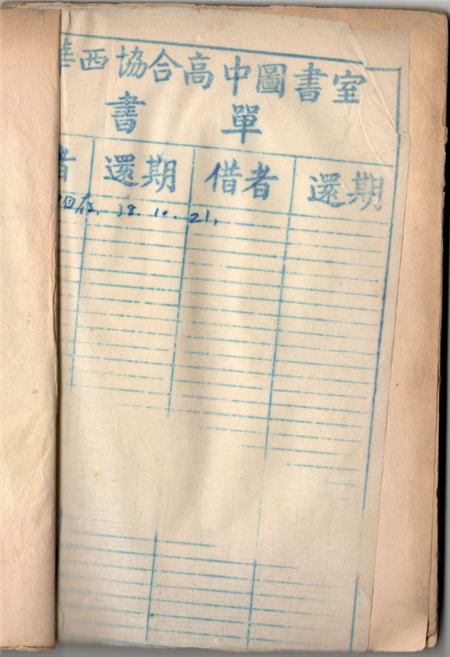 華西協合高中圖書室
書單
者 還期 借者 還期
38.10.21.